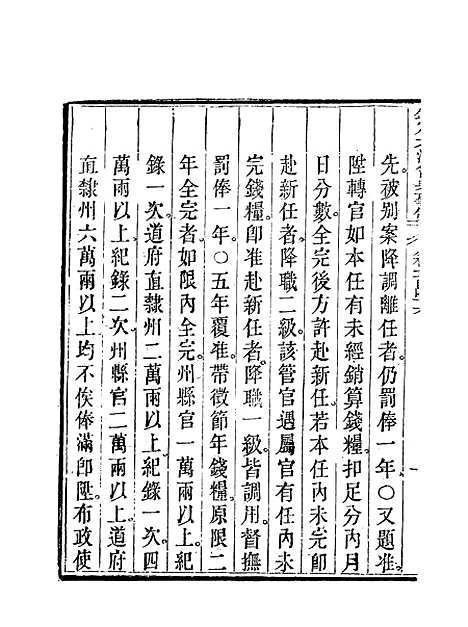 先被別案降調離任者仍罰俸一年〇又題准
陞轉官如本任有未經銷算錢糧扣足分內月
日分數全完後方許赴新任若本任內未完卽
赴新任者降職二級該管官遇屬官有任內未
完錢糧卽准赴新任者降職一級皆調用督撫
罰俸一年〇五年覆准帶徵節年錢糧原限二
年全完者如限內全完州縣官一萬兩以上紀
錄一次道府直隸州二萬兩以上紀錄一次四
萬兩以上紀錄二次州縣官二萬兩以上道府
直隸州六萬兩以上均不俟俸滿卽陞布政使